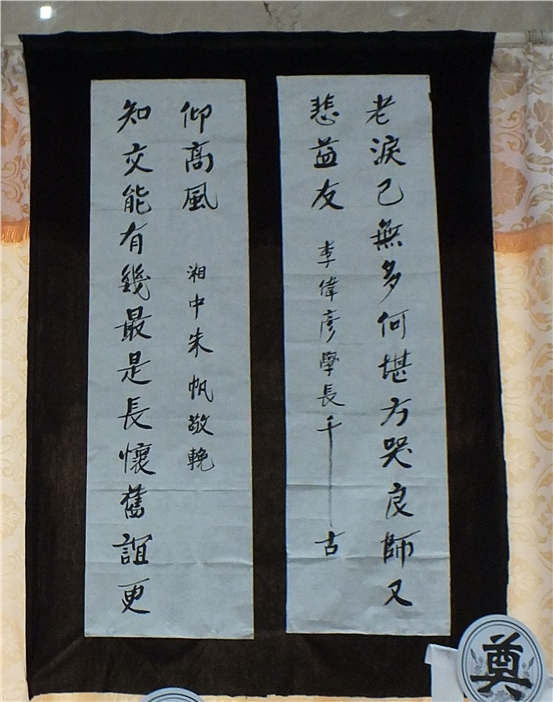 老淚已無多何堪方哭良師又
悲益友
李偉彥學長千古
知交能有幾最是長懷舊誼更
仰高風
湘中朱帆敬輓
奠